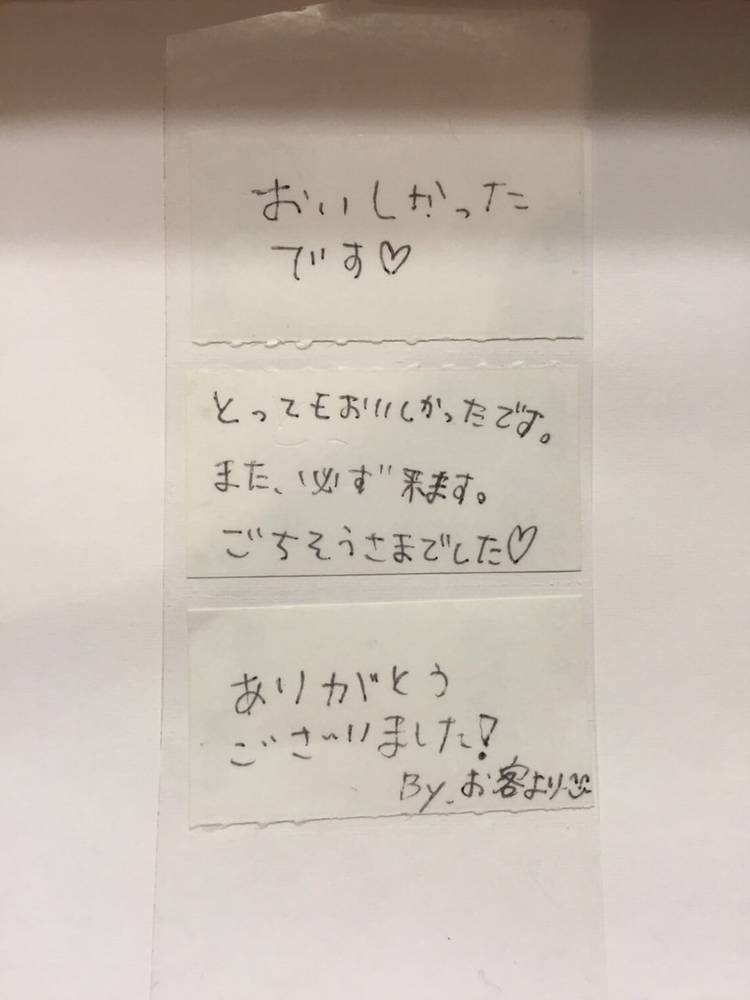 おいしかった
です♡
とってもおいしかったです。
また、必ず来ます。
ごちそうさまでした♡
ありがとう
ございました!
By.お客より